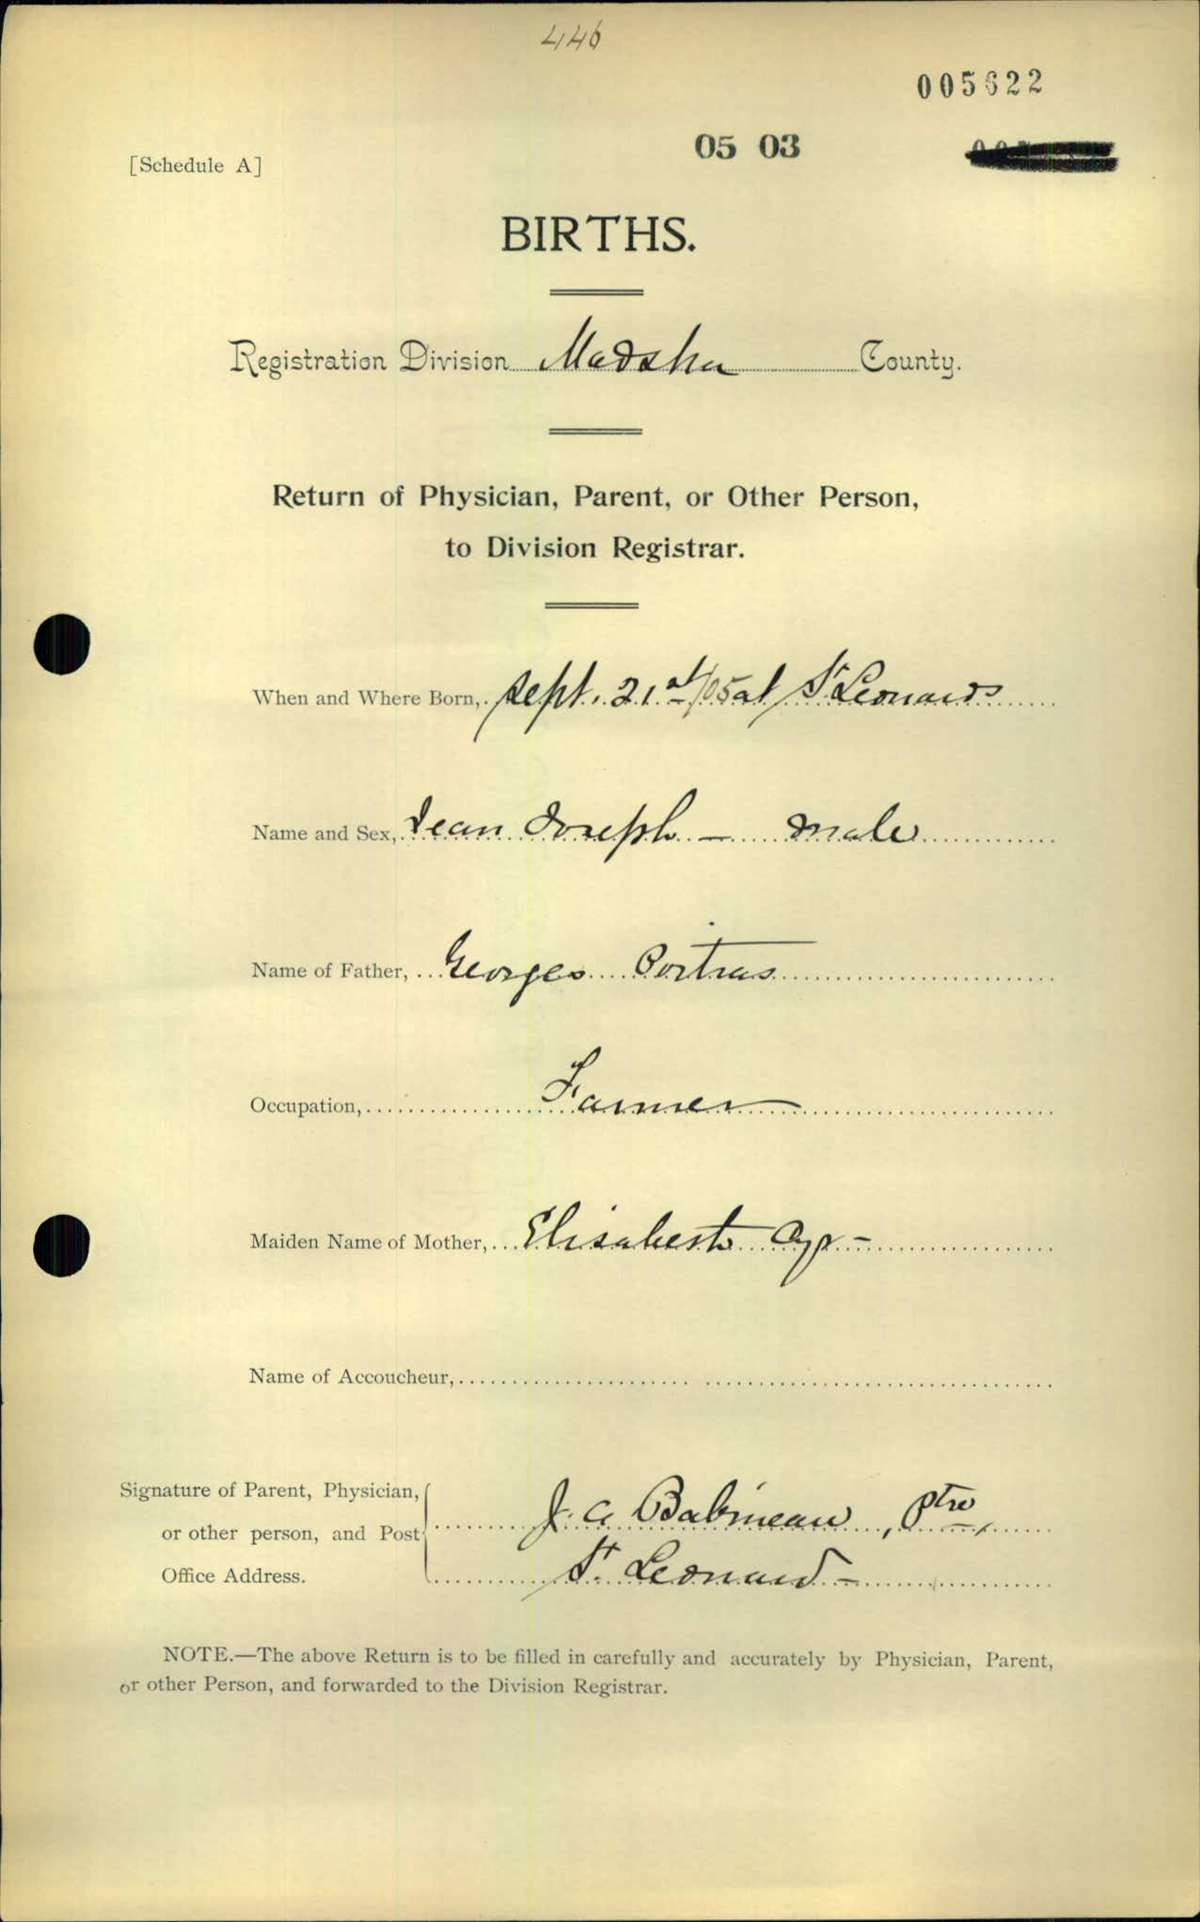 446
005622
05 03
[Schedule A]
BIRTHS.
Registration Division Madska County.
Return of Physician, Parent, or Other Person,
to Division Registrar.
When and Where Born, Sept. 21st/05 at St Leonards
Name and Sex, Jean Joseph – male
Name of Father, Georges Poitras
Occupation, Farmer
Maiden Name of Mother, Elisabeth Cyr –
Name of Accoucheur,
Signature of Parent, Physician,
or other person, and Post J. A Babineau, Ptre,
Office Address. St. Leonard –
NOTE.—The above Return is to be filled in carefully and accurately by Physician, Parent,
or other Person, and forwarded to the Division Registrar.